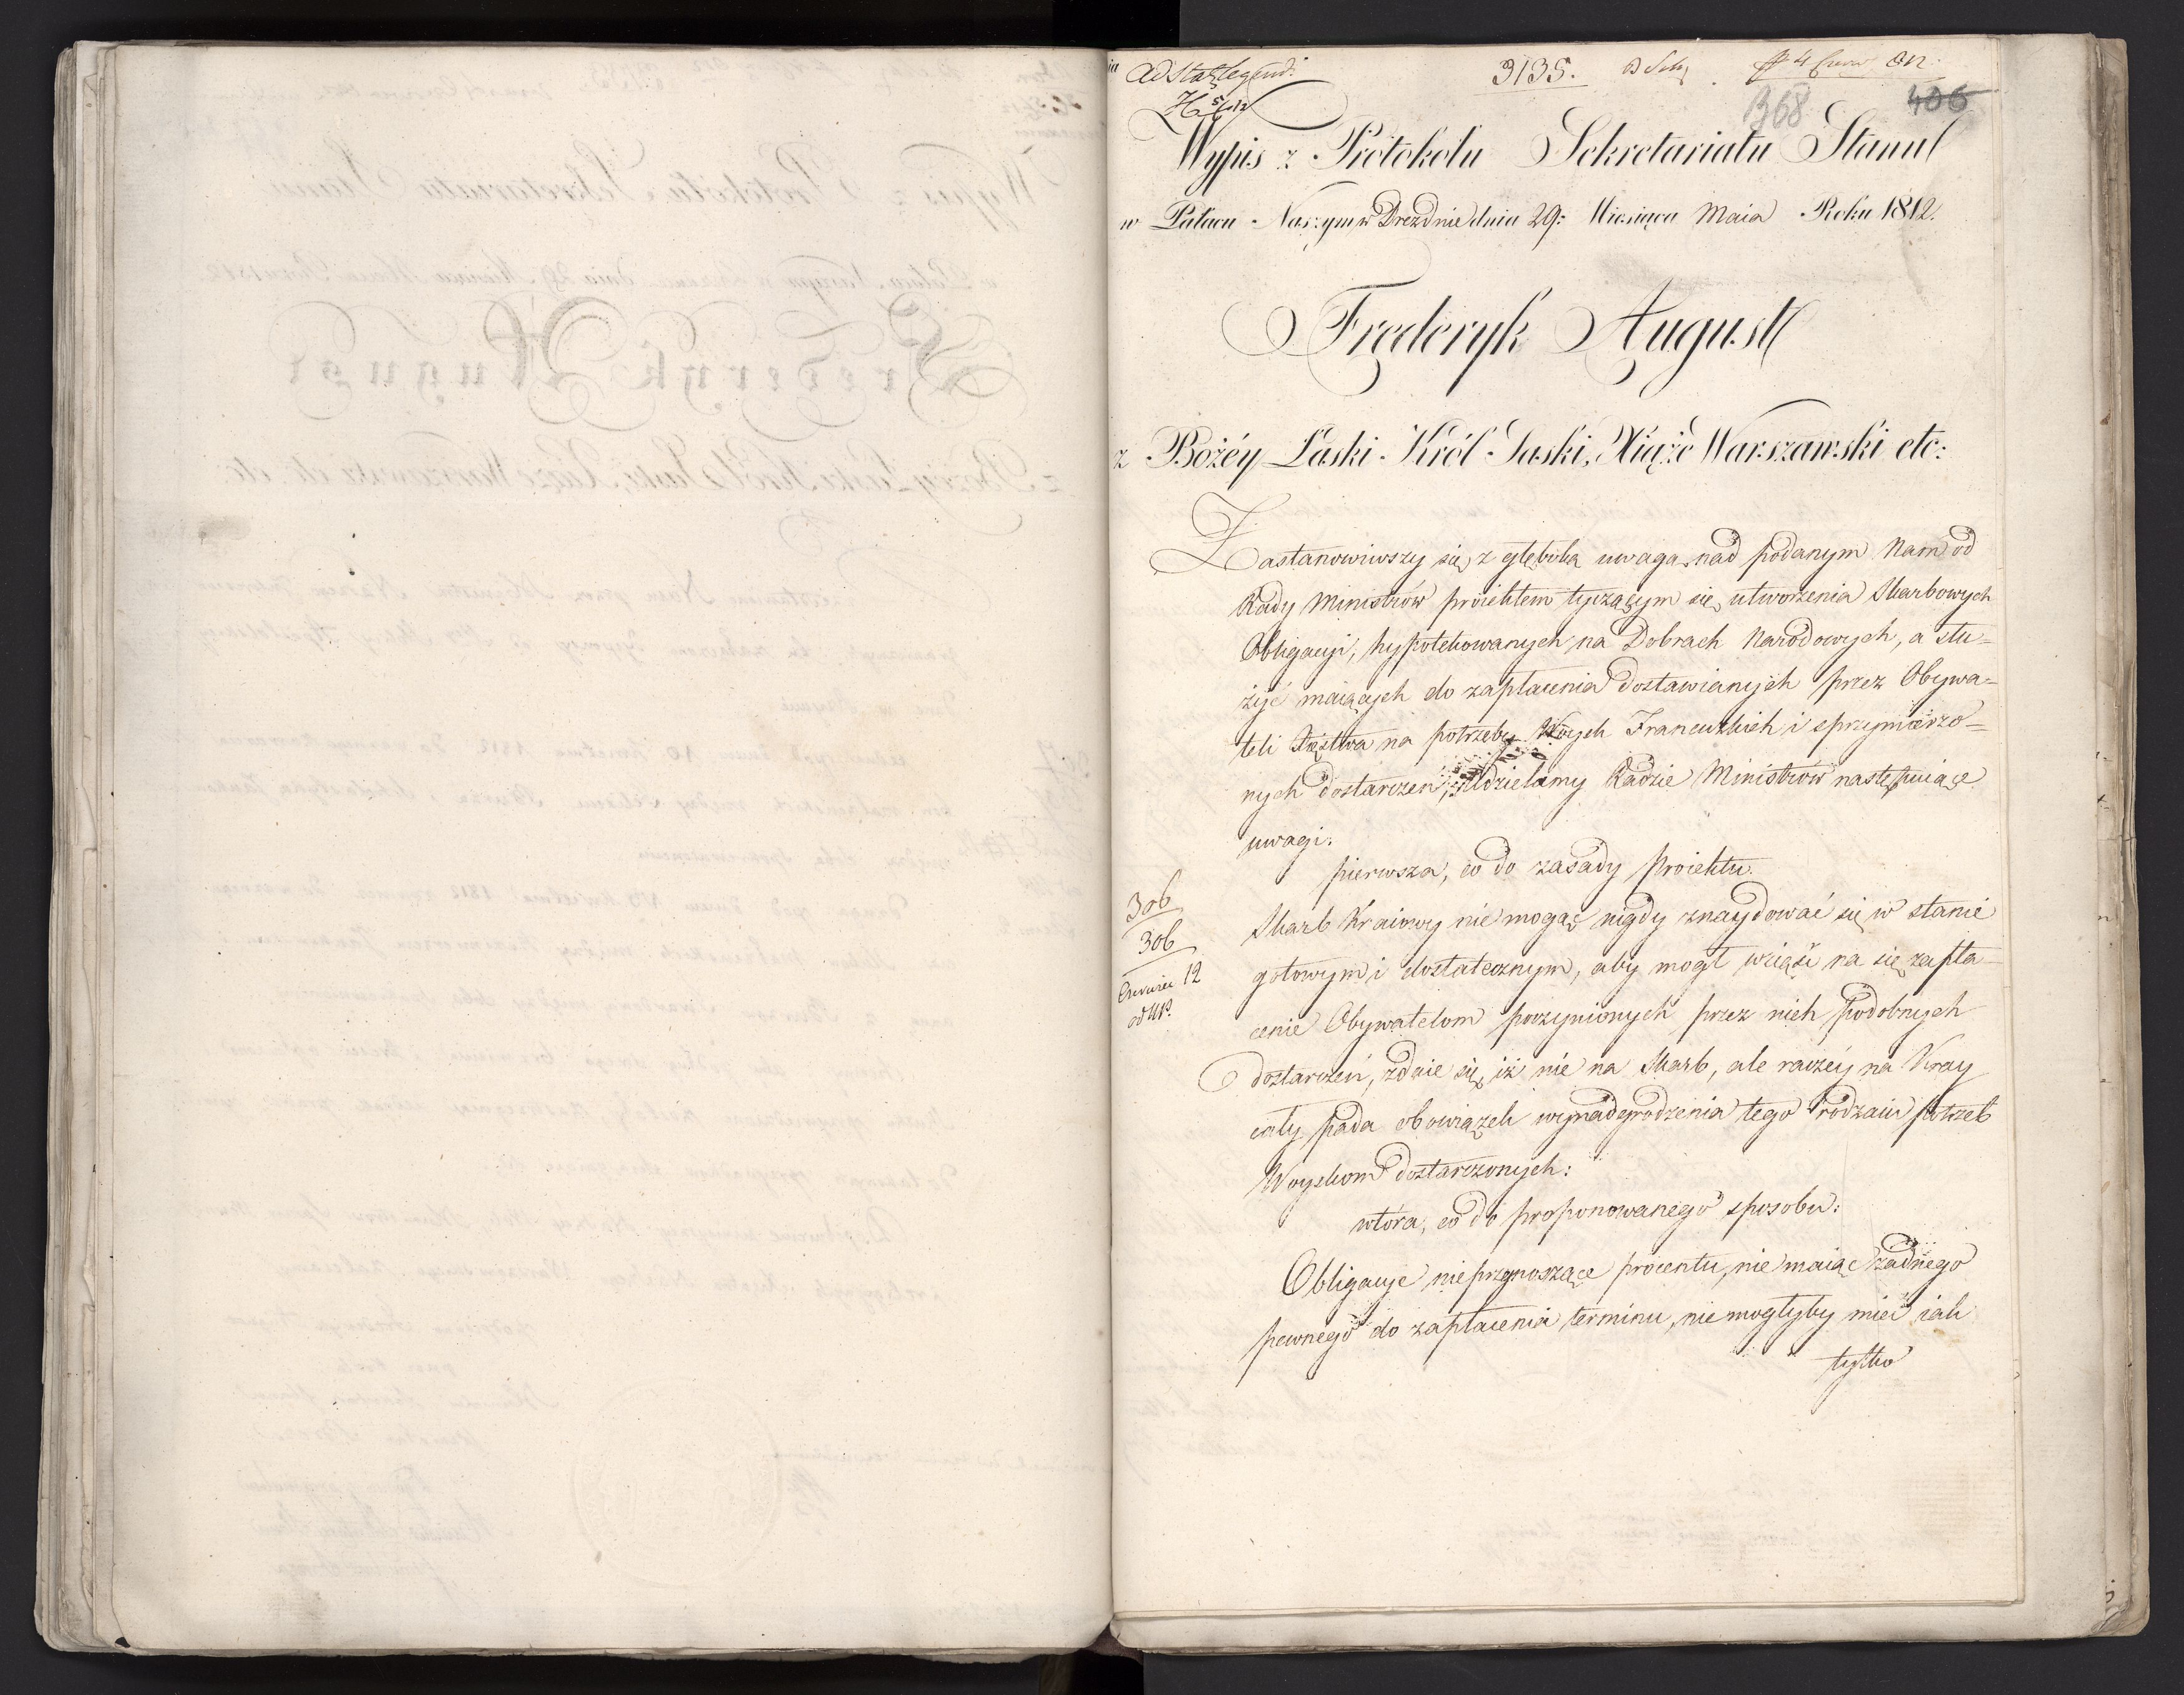 3135.
368
406
Wypis z Protokołu Sekretariatu Stanu
w Pałacu Naszym w Dreznie dnia 29: Miesiąca Maia Roku 1812.
Frederyk August
z Bożéy Łaski Król Saski, Xiążę Warszawski etc:
Zastanowiwszy się z głęboką uwagą nad podanym Nam od
Rady Ministrów proiektem tyczącym się utworzenia Skarbowych
Obligacyi, hypotekowanych na Dobrach Narodowych, a słu=
żyć maiących do zapłacenia dostawianych przez Obywa=
teli Xięstwa na potrzeby Woysk Francuzkich i sprzymierzo=
nych dostarczeń, udzielamy Radzie Ministrów następuiące
uwagi:
pierwsza, co do zasady Proiektu.
Skarb Kraiowy nie mogąc nigdy znaydować się w stanie
gotowym i dostatecznym, aby mogł wziąść na się zapła=
cenie Obywatelom poczynionych przez nich podobnych
dostarczeń, zdaie się, iż nie na Skarb, ale raczéy na Kray
cały pada obowiązek wynadgrodzenia tego rodzaiu potrzeb
Woyskom dostarczonych:
wtóra, co do proponowanego sposobu:
Obligacye nieprzynoszące procentu, nie maiąc żadnego
pewnego do zapłacenia terminu, nie mogłyby mieć iak
tylko
306
306
Czerwiec 12